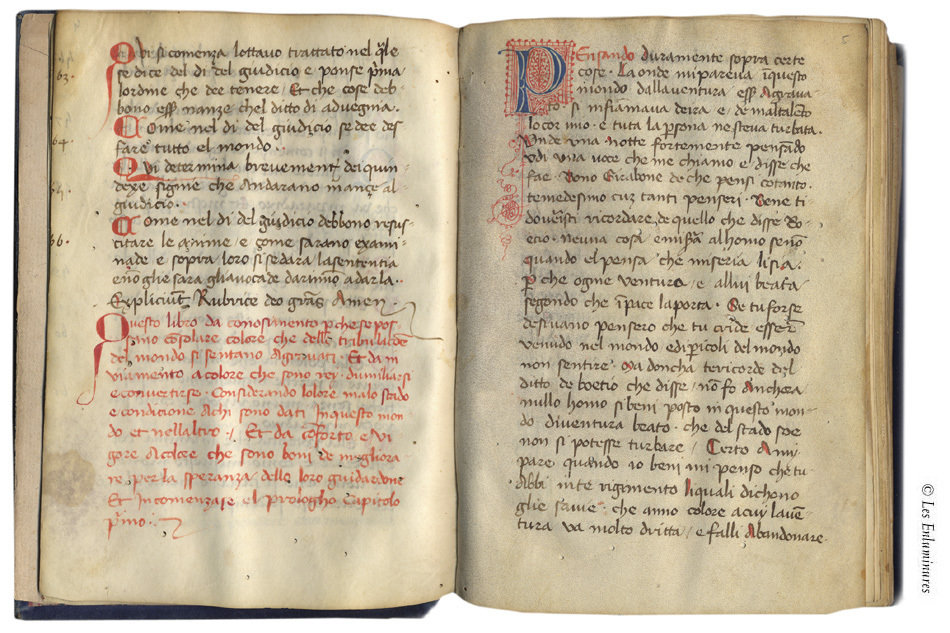 63.
Obi si comenza lottauo trattato nel q̃le
se dice del di del giudicio e ponse p̃ma
lordine che dee tenere / Et che cose deb
bono ess̃ nanze chel ditto di aduegnia.
64.
Come nel di del giudicio se dee des
fare tutto el mondo.
Qui determina breuement̃ dei quin
dexe signie che Andarano inançe al
giudicio.
66.
Come nel di del giudicio debbono resus
citare le Anime / e come sarano exami
nade e sopra loro si se dara la sententia
Expliciunt Rubrice deo gr̃as Amen.
Questo libro da conosimento p che se pos
sino cõsolare colore che delle tribulatione
del mondo si sentano Agrauati. Et da in
uiamento a colore che sono rei dumiliarsi
e conuertirse. Considerando lolore malo stado
e condicione Achi sono dati In questo mon
do et nellaltro. / Et da cõforto e Vi
gore Acolore che sono boni de megliora
re per la speranza delle loro guidardone
Et Incomenzase el prologho Capitolo
p̃mo.
PEnsando duramente sopra certe
cose. La onde mi pareua ĩ questo
mondo dalla uentura ess̃ Agraua
to. si infiamaua de ira e de maltalẽto
lo cor mio. e tuta la p̃sona ne steua turbata.
Unde una notte fortemente pensãdo
Udi una uoce che me chiamo e disse che
fae. Bono Girabone de che pensi cotanto.
temedesimo cuz tanti penseri. Bene ti
doueristi ricordare de quello che disse Bo
etio. Neuna cosa e misr̃a al homo seno
quando el pensa che miseria li sia.
p̃ che ogne uentura / e allui beata
segondo che ĩ pace la porta. Se tu forse
desiuano pensero che tu cr̃de esser̃
uenudo nel mondo edi p̃icoli del mondo
non sentire. Ma doncha te ricorde del
ditto de boetio che disse / nõ fo Anchora
nullo homo si beni posto in questo mon
do di uentura beato. che del stado soe
non si potesse turbare / Certo A mi
pare quando io beni mi penso che tu
Abbi in te rigimento li quali dichono
glie sauie. che anno colore a cui la uẽ
tura ua molto dritta / e falli Abandonare
© Les Enluminures